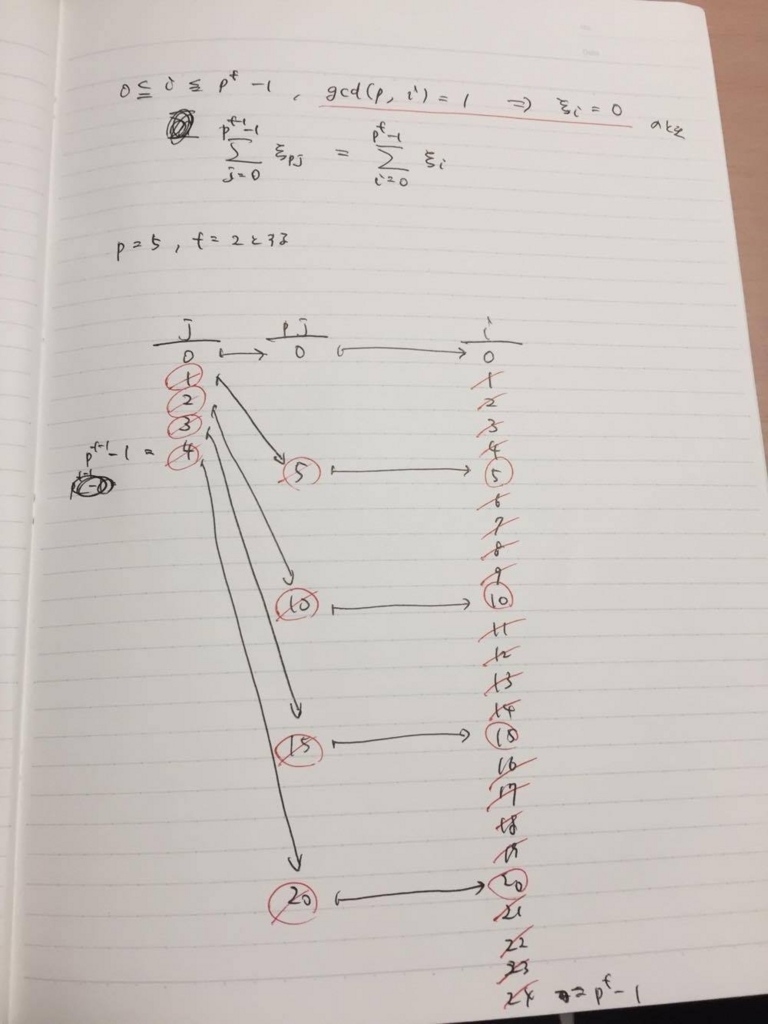 0 ≦ i ≦ p^f - 1 , gcd(p, i) = 1 ⇒ ξ_i = 0 のとき
∑_{j=0}^{p^{f-1}-1} ξ_{pj} = ∑_{i=0}^{p^f-1} ξ_i
p = 5 , f = 2 とする
j pj i
0 ↔ 0 ↦ 0
1
2
3
4
p^{f-1} - 1 = 4
5 ↦ 5
6
7
8
9
10 ↦ 10
11
12
13
14
15 ↦ 15
16
17
18
19
20 ↦ 20
21
22
23
24 = p^f - 1
1
2
3